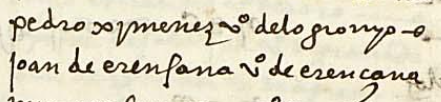 pedro ximenez vº de logronyo
Joan de erensana vº de erencana